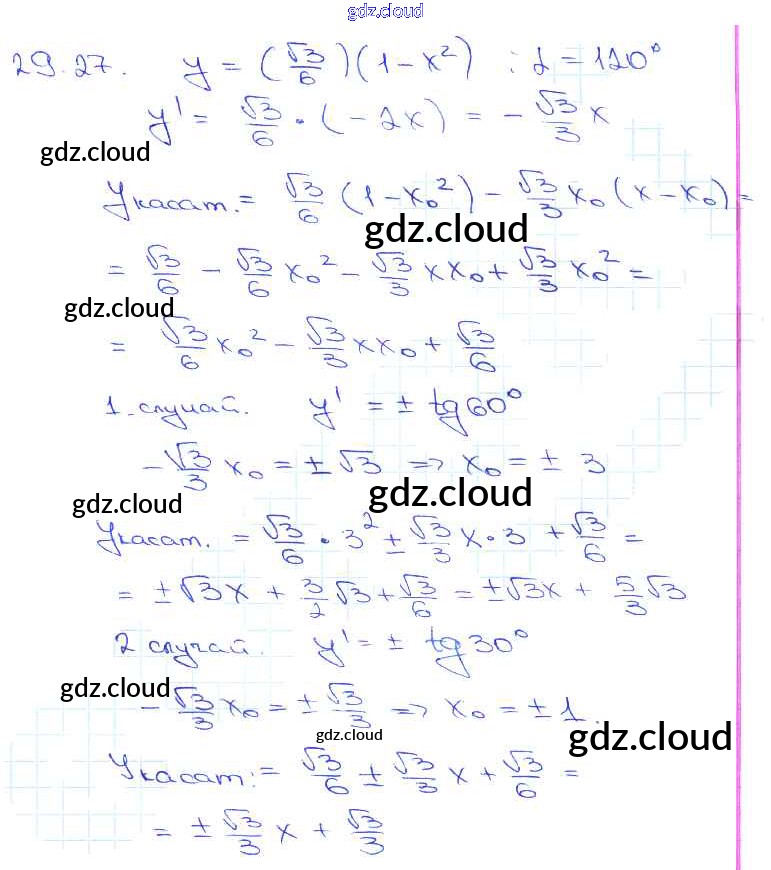 gdz.cloud
29.27. y = (√3/6)(1 - x²) ; α = 120°
y' = √3/6 · (-2x) = - √3/3 x
gdz.cloud
Yкасат. = √3/6 (1 - x₀²) - √3/3 x₀ (x - x₀) =
gdz.cloud
= √3/6 - √3/6 x₀² - √3/3 x x₀ + √3/3 x₀² =
gdz.cloud
= √3/6 x₀² - √3/3 x x₀ + √3/6
1-случай. y' = ± tg 60°
- √3/3 x₀ = ± √3 => x₀ = ± 3
gdz.cloud gdz.cloud
Yкасат. = √3/6 · 3² ± √3/3 x · 3 + √3/6 =
= ± √3 x + 3/2 √3 + √3/6 = ± √3 x + 5/3 √3
2 случай. y' = ± tg 30°
gdz.cloud
- √3/3 x₀ = ± √3/3 => x₀ = ± 1.
gdz.cloud gdz.cloud
Yкасат: = √3/6 ± √3/3 x + √3/6 =
= ± √3/3 x + √3/3